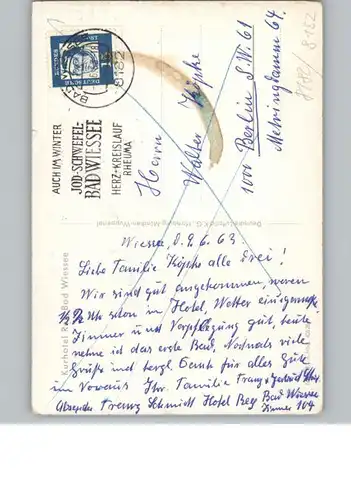 BAD WIESSEE
8182
DEUTSCHE
AUCH IM WINTER
JOD-SCHWEFEL-
BAD WIESSEE
HERZ+KREISLAUF
RHEUMA
8182
Herrn
Walter Köpke
1000 Berlin S.W. 61
Mehringdamm 64.
Kurhotel Rex Bad Wiessee
Wiessee, d. 9.6.63.
Liebe Familie Köpke alle Drei!
Wir sind gut angekommen, waren
Uhr schon im Hotel, Wetter
Zimmer und Verpflegung gut, heute
nehme ich das erste Bad. Nochmals viele
Grüße und herzl. Dank für alles Gute
im Voraus Ihr. Familie Franz + Gertrud
Absender Franz Schmidt Hotel Rex Bad Wiessee
Zimmer 104